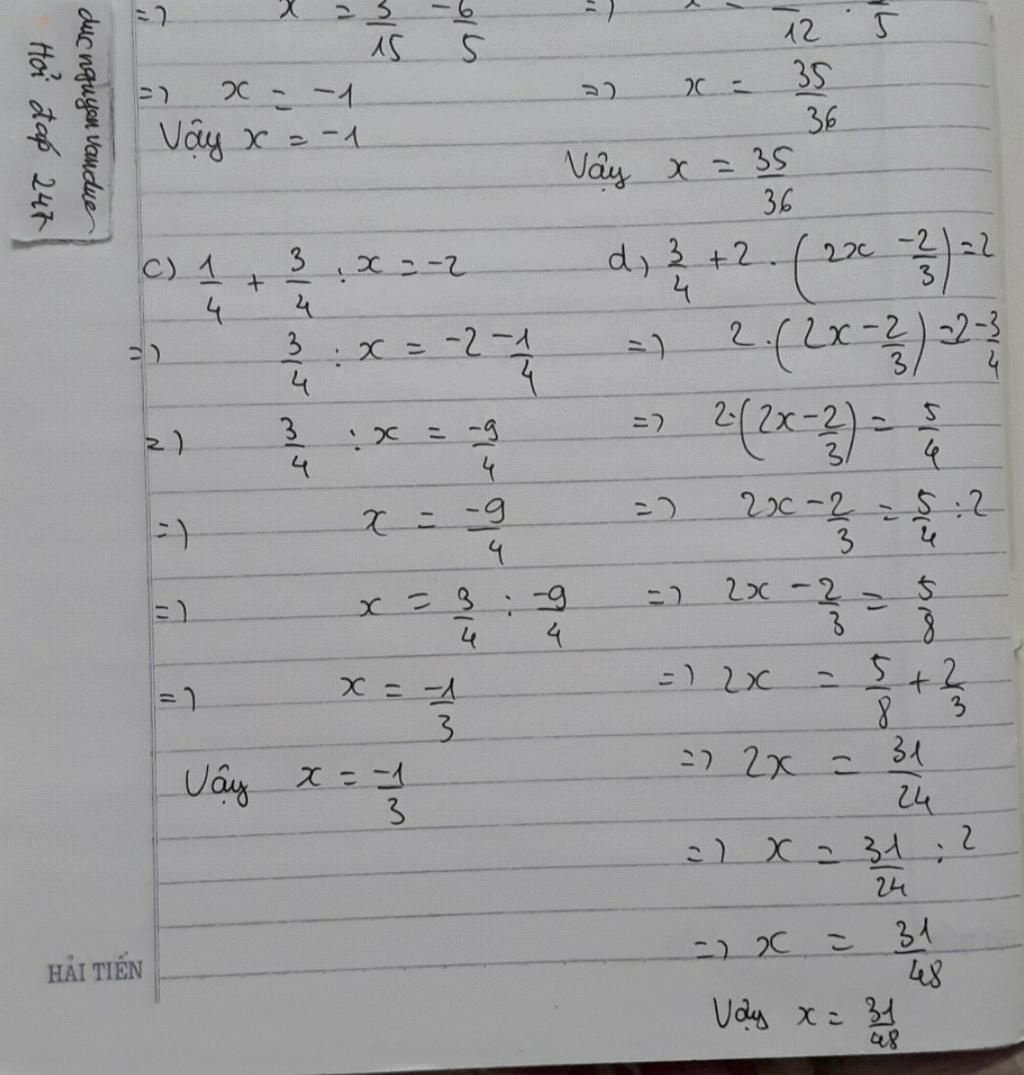 duc nguyen van duc
Hỏi đáp 247
=) x = 3/15 - 6/5
=) x = -1
Vậy x = -1
=) 12 . 5
=) x = 35/36
Vậy x = 35/36
c) 1/4 + 3/4 : x = -2
=) 3/4 : x = -2 - 1/4
=) 3/4 : x = -9/4
=) x = -9/4
=) x = 3/4 : -9/4
=) x = -1/3
Vậy x = -1/3
d) 3/4 + 2 . (2x - 2/3) = 2
=) 2 . (2x - 2/3) = 2 - 3/4
=) 2 . (2x - 2/3) = 5/4
=) 2x - 2/3 = 5/4 : 2
=) 2x - 2/3 = 5/8
=) 2x = 5/8 + 2/3
=) 2x = 31/24
=) x = 31/24 : 2
=) x = 31/48
Vậy x = 31/48
HẢI TIẾN